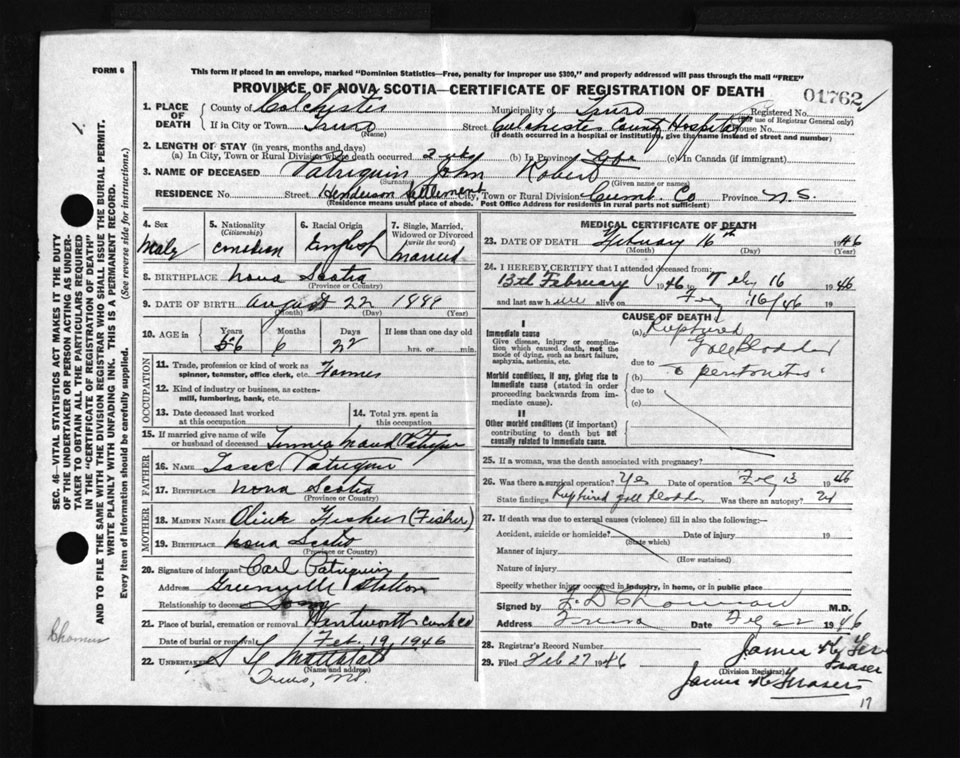 FORM 6
This form if placed in an envelope, marked "Dominion Statistics—Free, penalty for improper use $300," and properly addressed will pass through the mail "FREE"
PROVINCE OF NOVA SCOTIA—CERTIFICATE OF REGISTRATION OF DEATH
01762
1. PLACE OF DEATH County of Colchester Municipality of Truro Registered No.
(For use of Registrar General only)
If in City or Town Truro Street Colchester County Hospital House No.
(If death occurred in a hospital or institution, give the name instead of street and number)
2. LENGTH OF STAY (in years, months and days)
(a) In City, Town or Rural Division where death occurred (b) In Province Life (c) In Canada (if immigrant)
3. NAME OF DECEASED Patriquin John Robert
(Surname) (Given name or names)
RESIDENCE No. Street Henderson Settlement City, Town or Rural Division Cumb. Co Province N.S.
(Residence means usual place of abode. Post Office Address for residents in rural parts not sufficient)
4. Sex
Male
5. Nationality
(Citizenship)
Canadian
6. Racial Origin
English
7. Single, Married, Widowed or Divorced
(write the word)
Married
8. BIRTHPLACE Nova Scotia
(Province or Country)
9. DATE OF BIRTH August 22
(Month) (Day) (Year)
10. AGE in
Years Months Days If less than one day old
56 6 22 hrs. or min.
OCCUPATION
11. Trade, profession or kind of work as spinner, teamster, office clerk, etc. Farmer
12. Kind of industry or business, as cotten-mill, lumbering, bank, etc.
13. Date deceased last worked at this occupation
14. Total yrs. spent in this occupation
15. If married give name of wife or husband of deceased Maud Patriquin
FATHER
16. NAME Isaac Patriquin
17. BIRTHPLACE Nova Scotia
(Province or Country)
MOTHER
18. MAIDEN NAME Olive Fisher (Fisher)
19. BIRTHPLACE Nova Scotia
(Province or Country)
20. Signature of informant Carl Patriquin
Address Greenville Station
Relationship to deceased Son
21. Place of burial, cremation or removal Wentworth Cumb Co
Date of burial or removal Feb. 19, 1946
22. UNDERTAKER
(Name and address)
Truro, N.S.
MEDICAL CERTIFICATE OF DEATH
23. DATE OF DEATH February 16th 1946
(Month) (Day) (Year)
24. I HEREBY CERTIFY that I attended deceased from:
13th February 1946 to Feby 16 1946
and last saw him alive on Feb 16/46 19
CAUSE OF DEATH
I
Immediate cause (a) Ruptured Gall Bladder
Give disease, injury or complication which caused death, not the mode of dying, such as heart failure, asphyxia, asthenia, etc.
due to
Morbid conditions, if any, giving rise to immediate cause (stated in order proceeding backwards from immediate cause).
(b) & peritonitis
due to
(c)
II
Other morbid conditions (if important) contributing to death but not causally related to immediate cause.
25. If a woman, was the death associated with pregnancy?
26. Was there a surgical operation? Yes Date of operation Feb 13 1946
State findings Ruptured gall bladder Was there an autopsy?
27. If death was due to external causes (violence) fill in also the following:—
Accident, suicide or homicide? Date of injury 19
(State which)
Manner of injury
(How sustained)
Nature of injury
Specify whether injury occurred in industry, in home, or in public place
Signed by M.D.
Address Truro Date 1946
28. Registrar's Record Number
29. Filed Feb 27 1946
James H Fraser
(Division Registrar)
James H Fraser
17
SEC. 46—VITAL STATISTICS ACT MAKES IT THE DUTY OF THE UNDERTAKER OR PERSON ACTING AS UNDERTAKER TO OBTAIN ALL THE PARTICULARS REQUIRED IN THE "CERTIFICATE OF REGISTRATION OF DEATH" AND TO FILE THE SAME WITH THE DIVISION REGISTRAR WHO SHALL ISSUE THE BURIAL PERMIT.
WRITE PLAINLY WITH UNFADING INK. THIS IS A PERMANENT RECORD.
Every item of information should be carefully supplied. (See reverse side for instructions.)